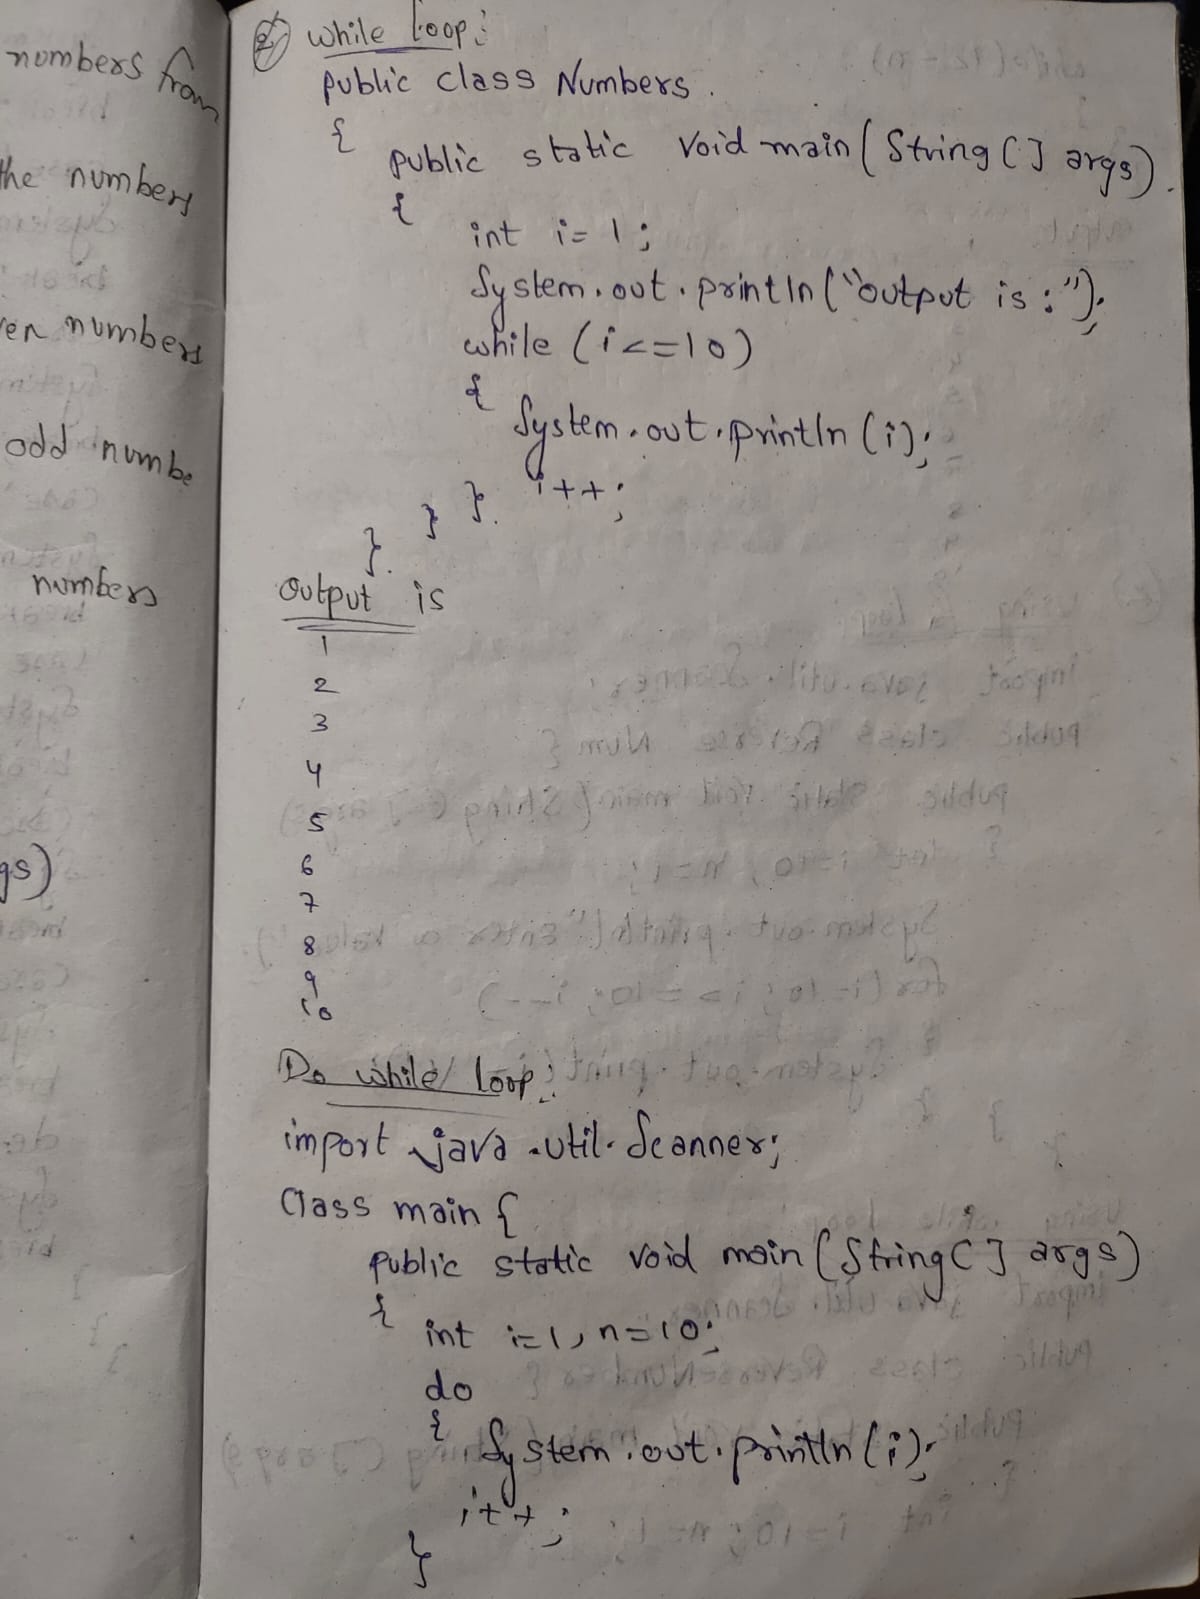 numbers from
the numbers
numbers
odd numbe
numbers
gs)
2) while loop:
public class Numbers.
{
public static void main(String[] args).
{
int i=1;
System.out.println("output is:");
while (i<=10)
{
System.out.println(i);
i++;
}.
}
}.
output is
1
2
3
4
5
6
7
8
9
10
Do while loop:
import java.util.Scanner;
Class main {
public static void main(String[] args)
{
int i=1, n=10;
do
{
System.out.println(i);
i++;
}